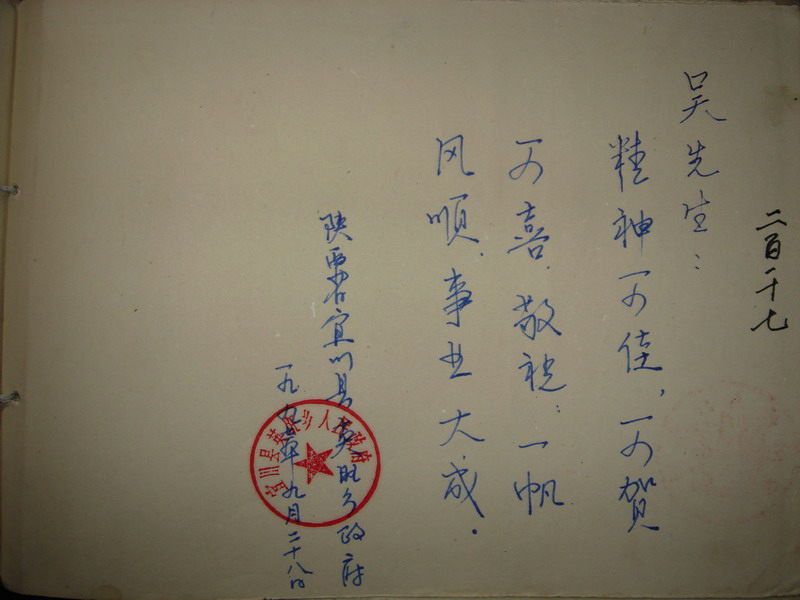 二百十七
吴先生：
精神可佳，可贺
可喜．敬祝：一帆
风顺．事业大成．
陕西省宜川县英旺乡政府
一九九五年九月二十八日
宜川县英旺乡人民政府